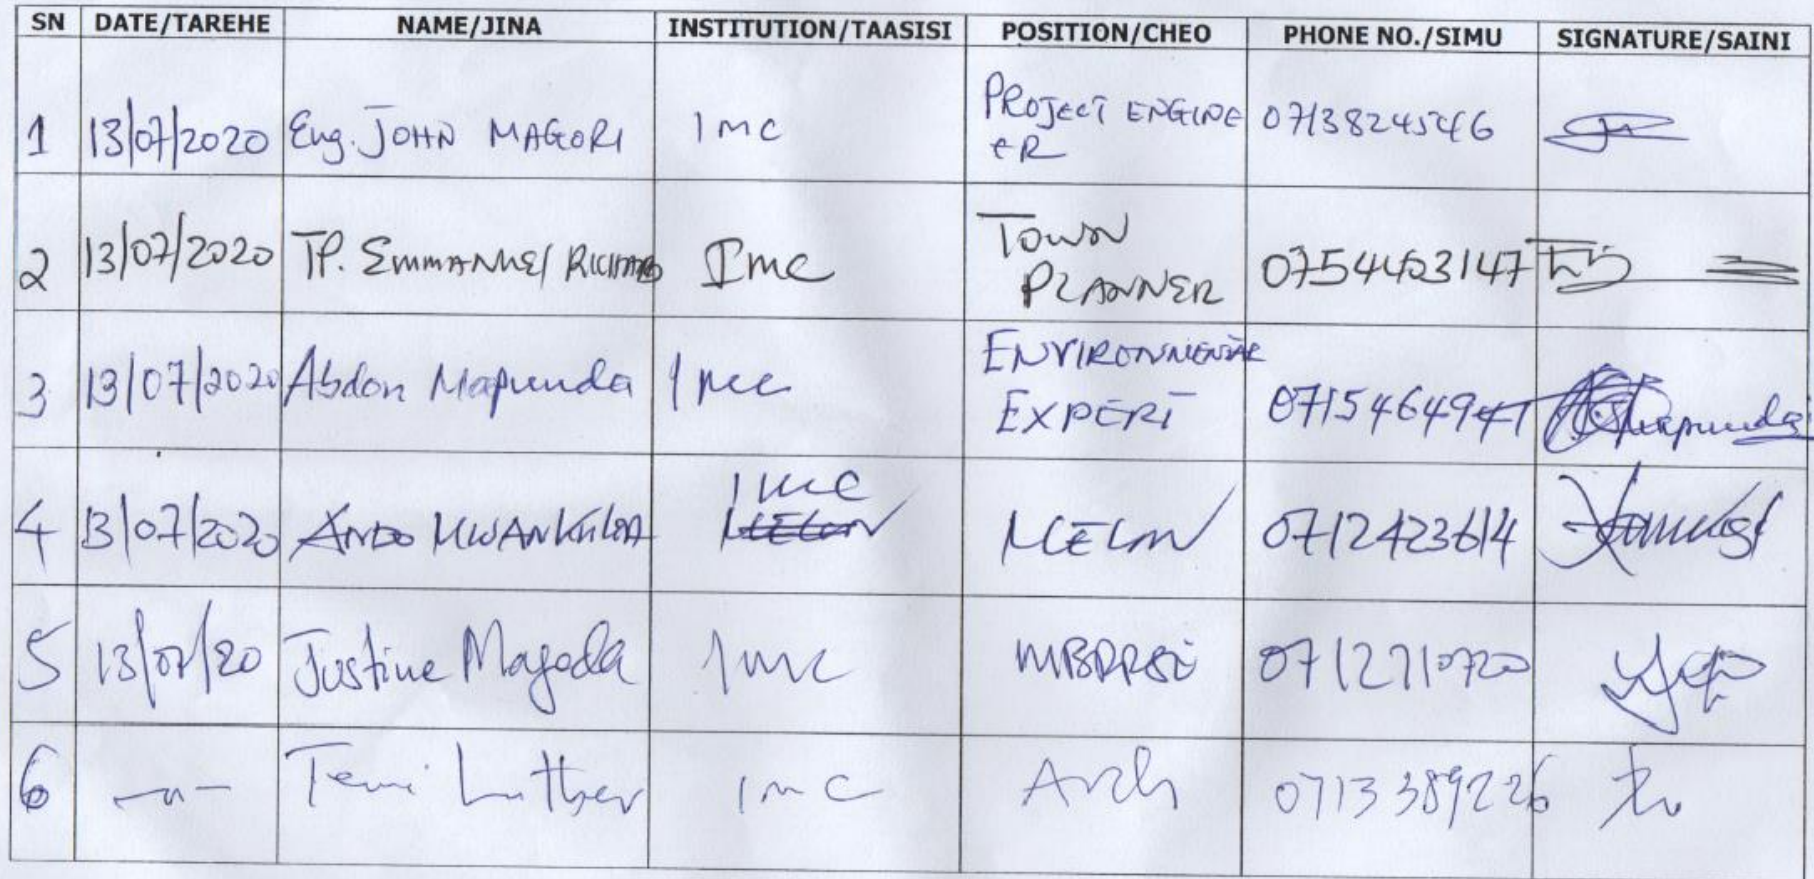 SN DATE/TAREHE NAME/JINA INSTITUTION/TAASISI POSITION/CHEO PHONE NO./SIMU SIGNATURE/SAINI
1 13/07/2020 Eng. JOHN MAGORI IMC PROJECT ENGINE 0713824546
ER
2 13/07/2020 TP. EMMANUEl RICHARD Imc TOWN
PLANNER 0754423147
3 13/07/2020 Abdon Mapunda Imc ENVIRONMENTAL
EXPERT 0715464947 Mapunda
4 13/07/2020 ANDO MWANKUGA Imc 0712423614
5 13/07/20 Justine Magoda Imc 0712710720
6 —〃— Temi Luther Imc Arch 0713389226